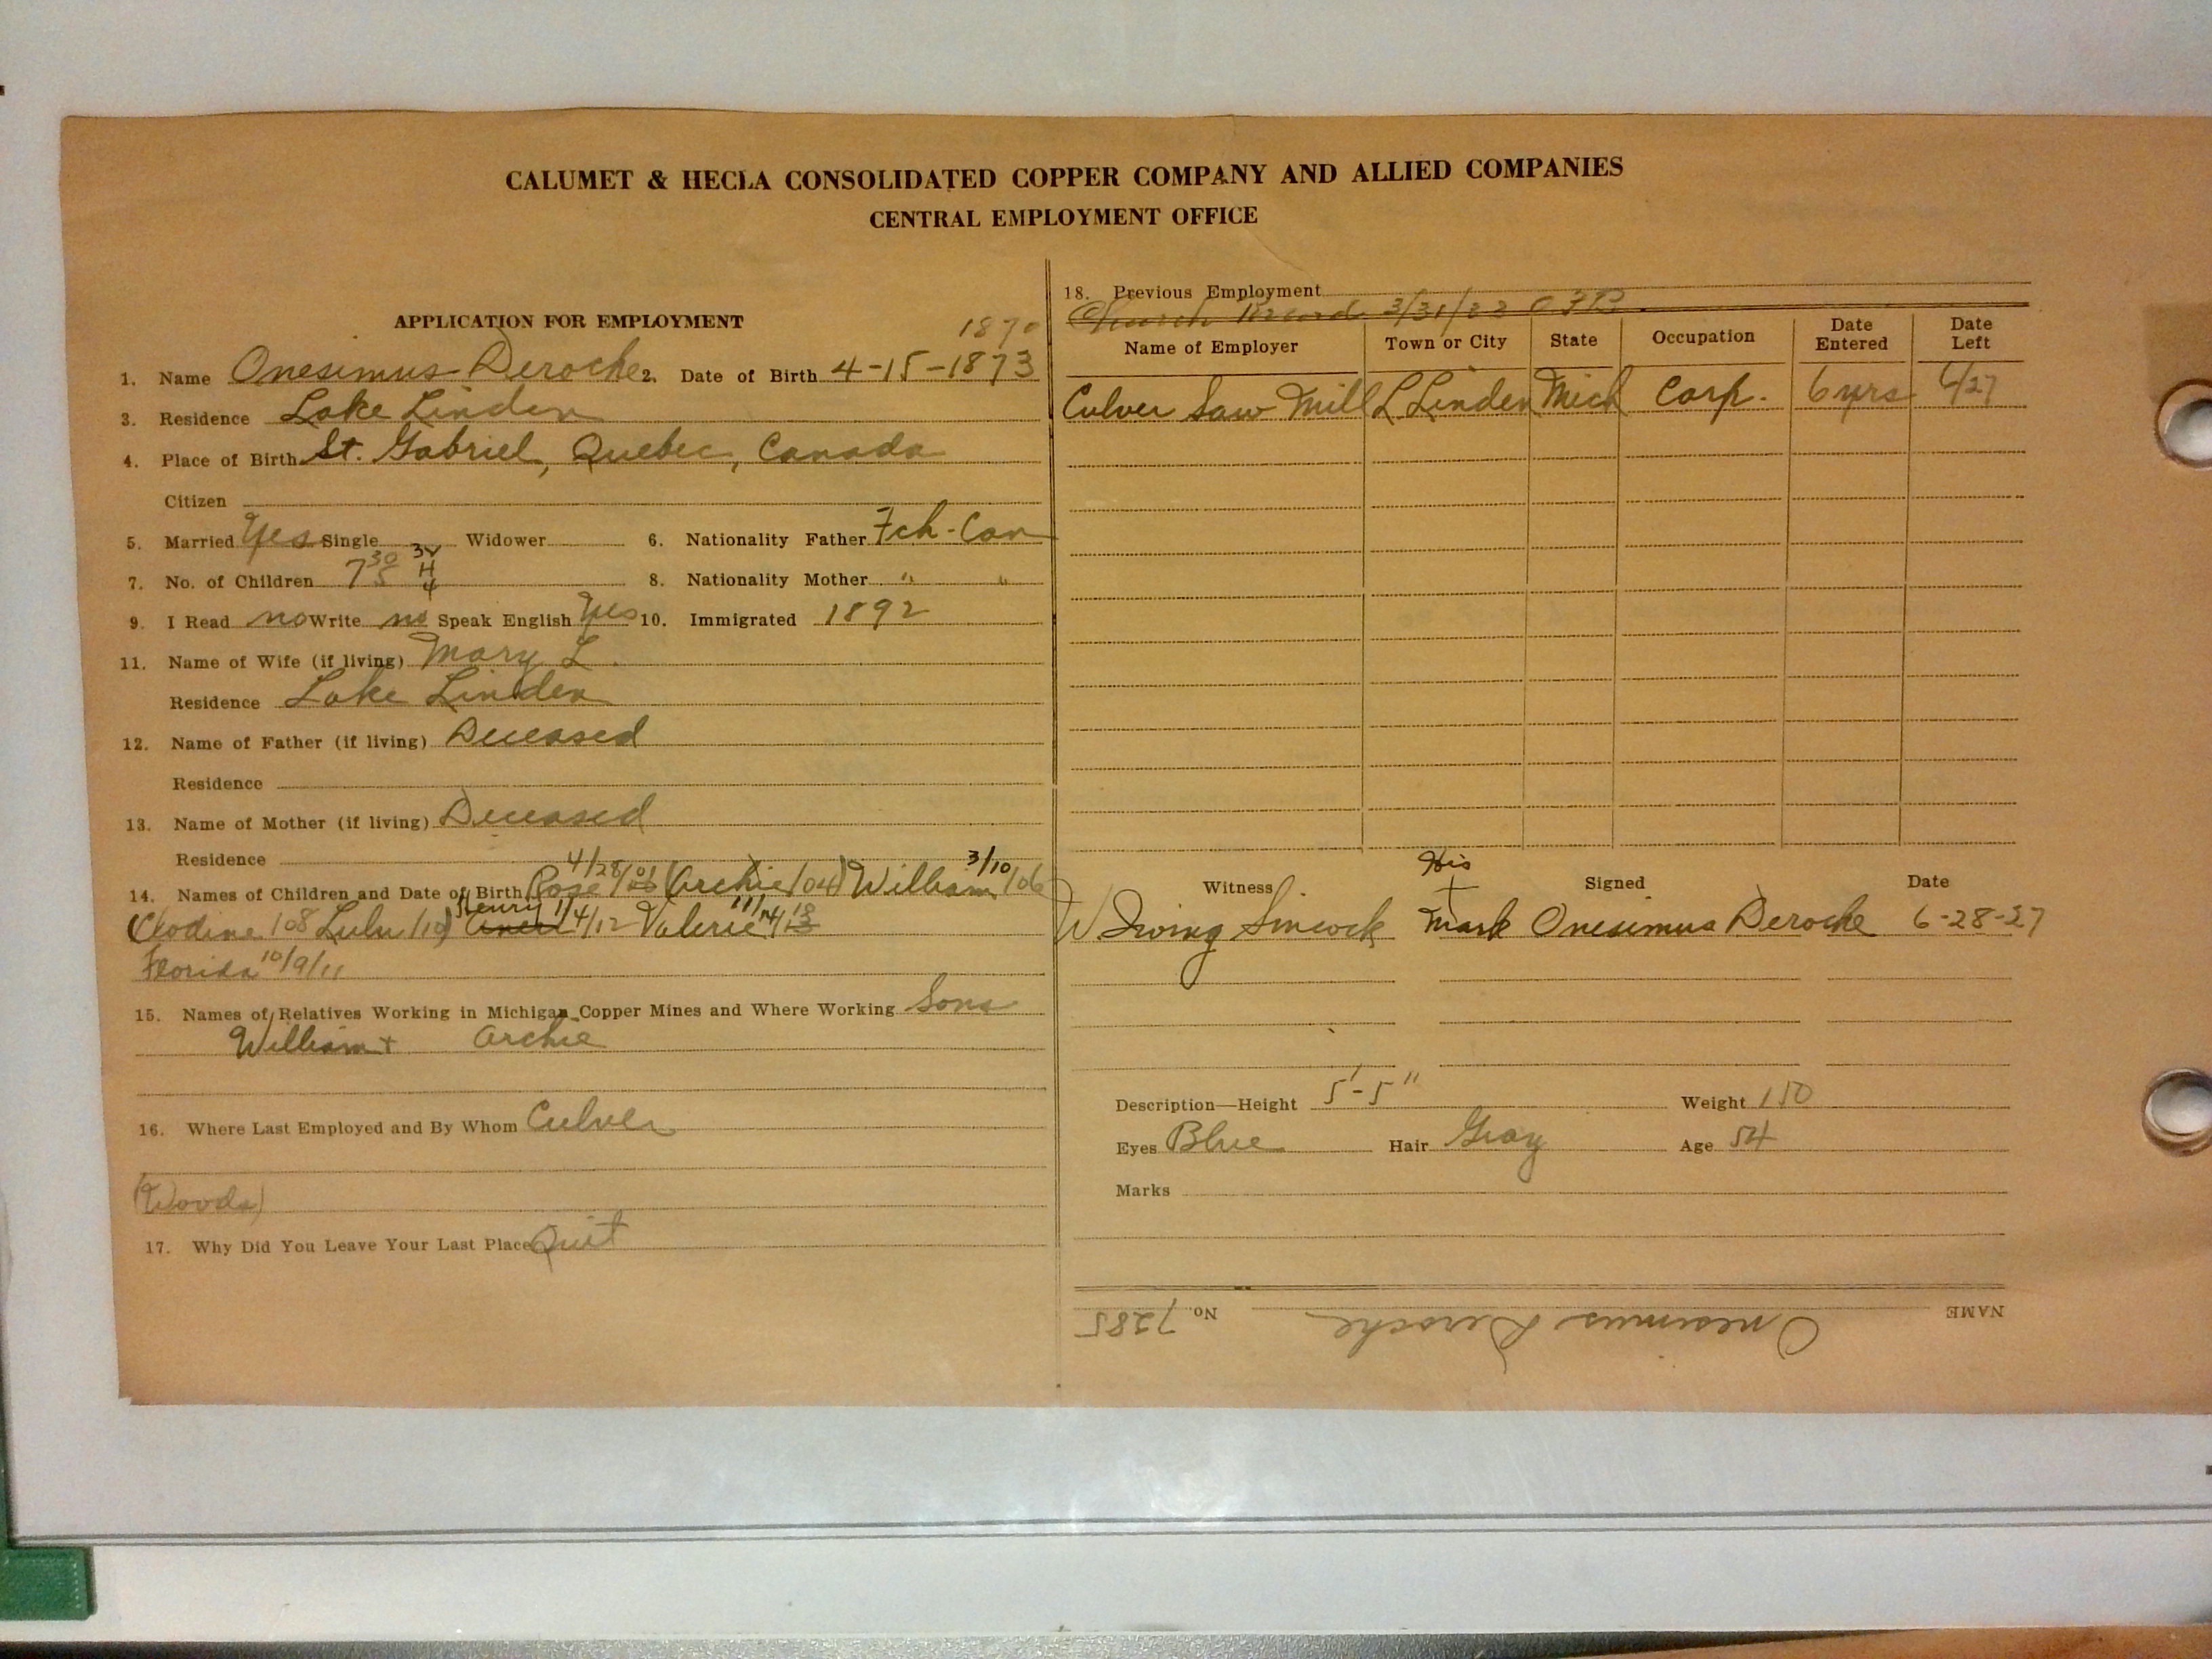 CALUMET & HECLA CONSOLIDATED COPPER COMPANY AND ALLIED COMPANIES
CENTRAL EMPLOYMENT OFFICE
APPLICATION FOR EMPLOYMENT
1870
1. Name Onesimus Deroche 2. Date of Birth 4-15-1873
3. Residence Lake Linden
4. Place of Birth St. Gabriel, Quebec, Canada
Citizen
5. Married Yes Single Widower 6. Nationality Father Fch-Can
7. No. of Children 7 8. Nationality Mother " "
9. I Read no Write no Speak English Yes 10. Immigrated 1892
11. Name of Wife (if living) Mary L.
Residence Lake Linden
12. Name of Father (if living) Deceased
Residence
13. Name of Mother (if living) Deceased
Residence
14. Names of Children and Date of Birth Rose 4/28/01 (Archie/04) William 3/10/06
(Clodine/08 Lulu/10) Henry 11/4/12 Valerie 11/14/18
Florida 10/9/11
15. Names of Relatives Working in Michigan Copper Mines and Where Working Sons
William + Archie
16. Where Last Employed and By Whom Culver
(Woods)
17. Why Did You Leave Your Last Place Quit
18. Previous Employment
Church Record 3/31/
Name of Employer Town or City State Occupation Date Entered Date Left
Culver Saw Mill L Linden Mich Carp. 6 yrs 6/27
His
Witness Signed Date
W Irving Sincock Mark Onesimus Deroche 6-28-27
Description—Height 5'-5" Weight 150
Eyes Blue Hair Gray Age 54
Marks
NAME Onesimus Deroche No. 7285